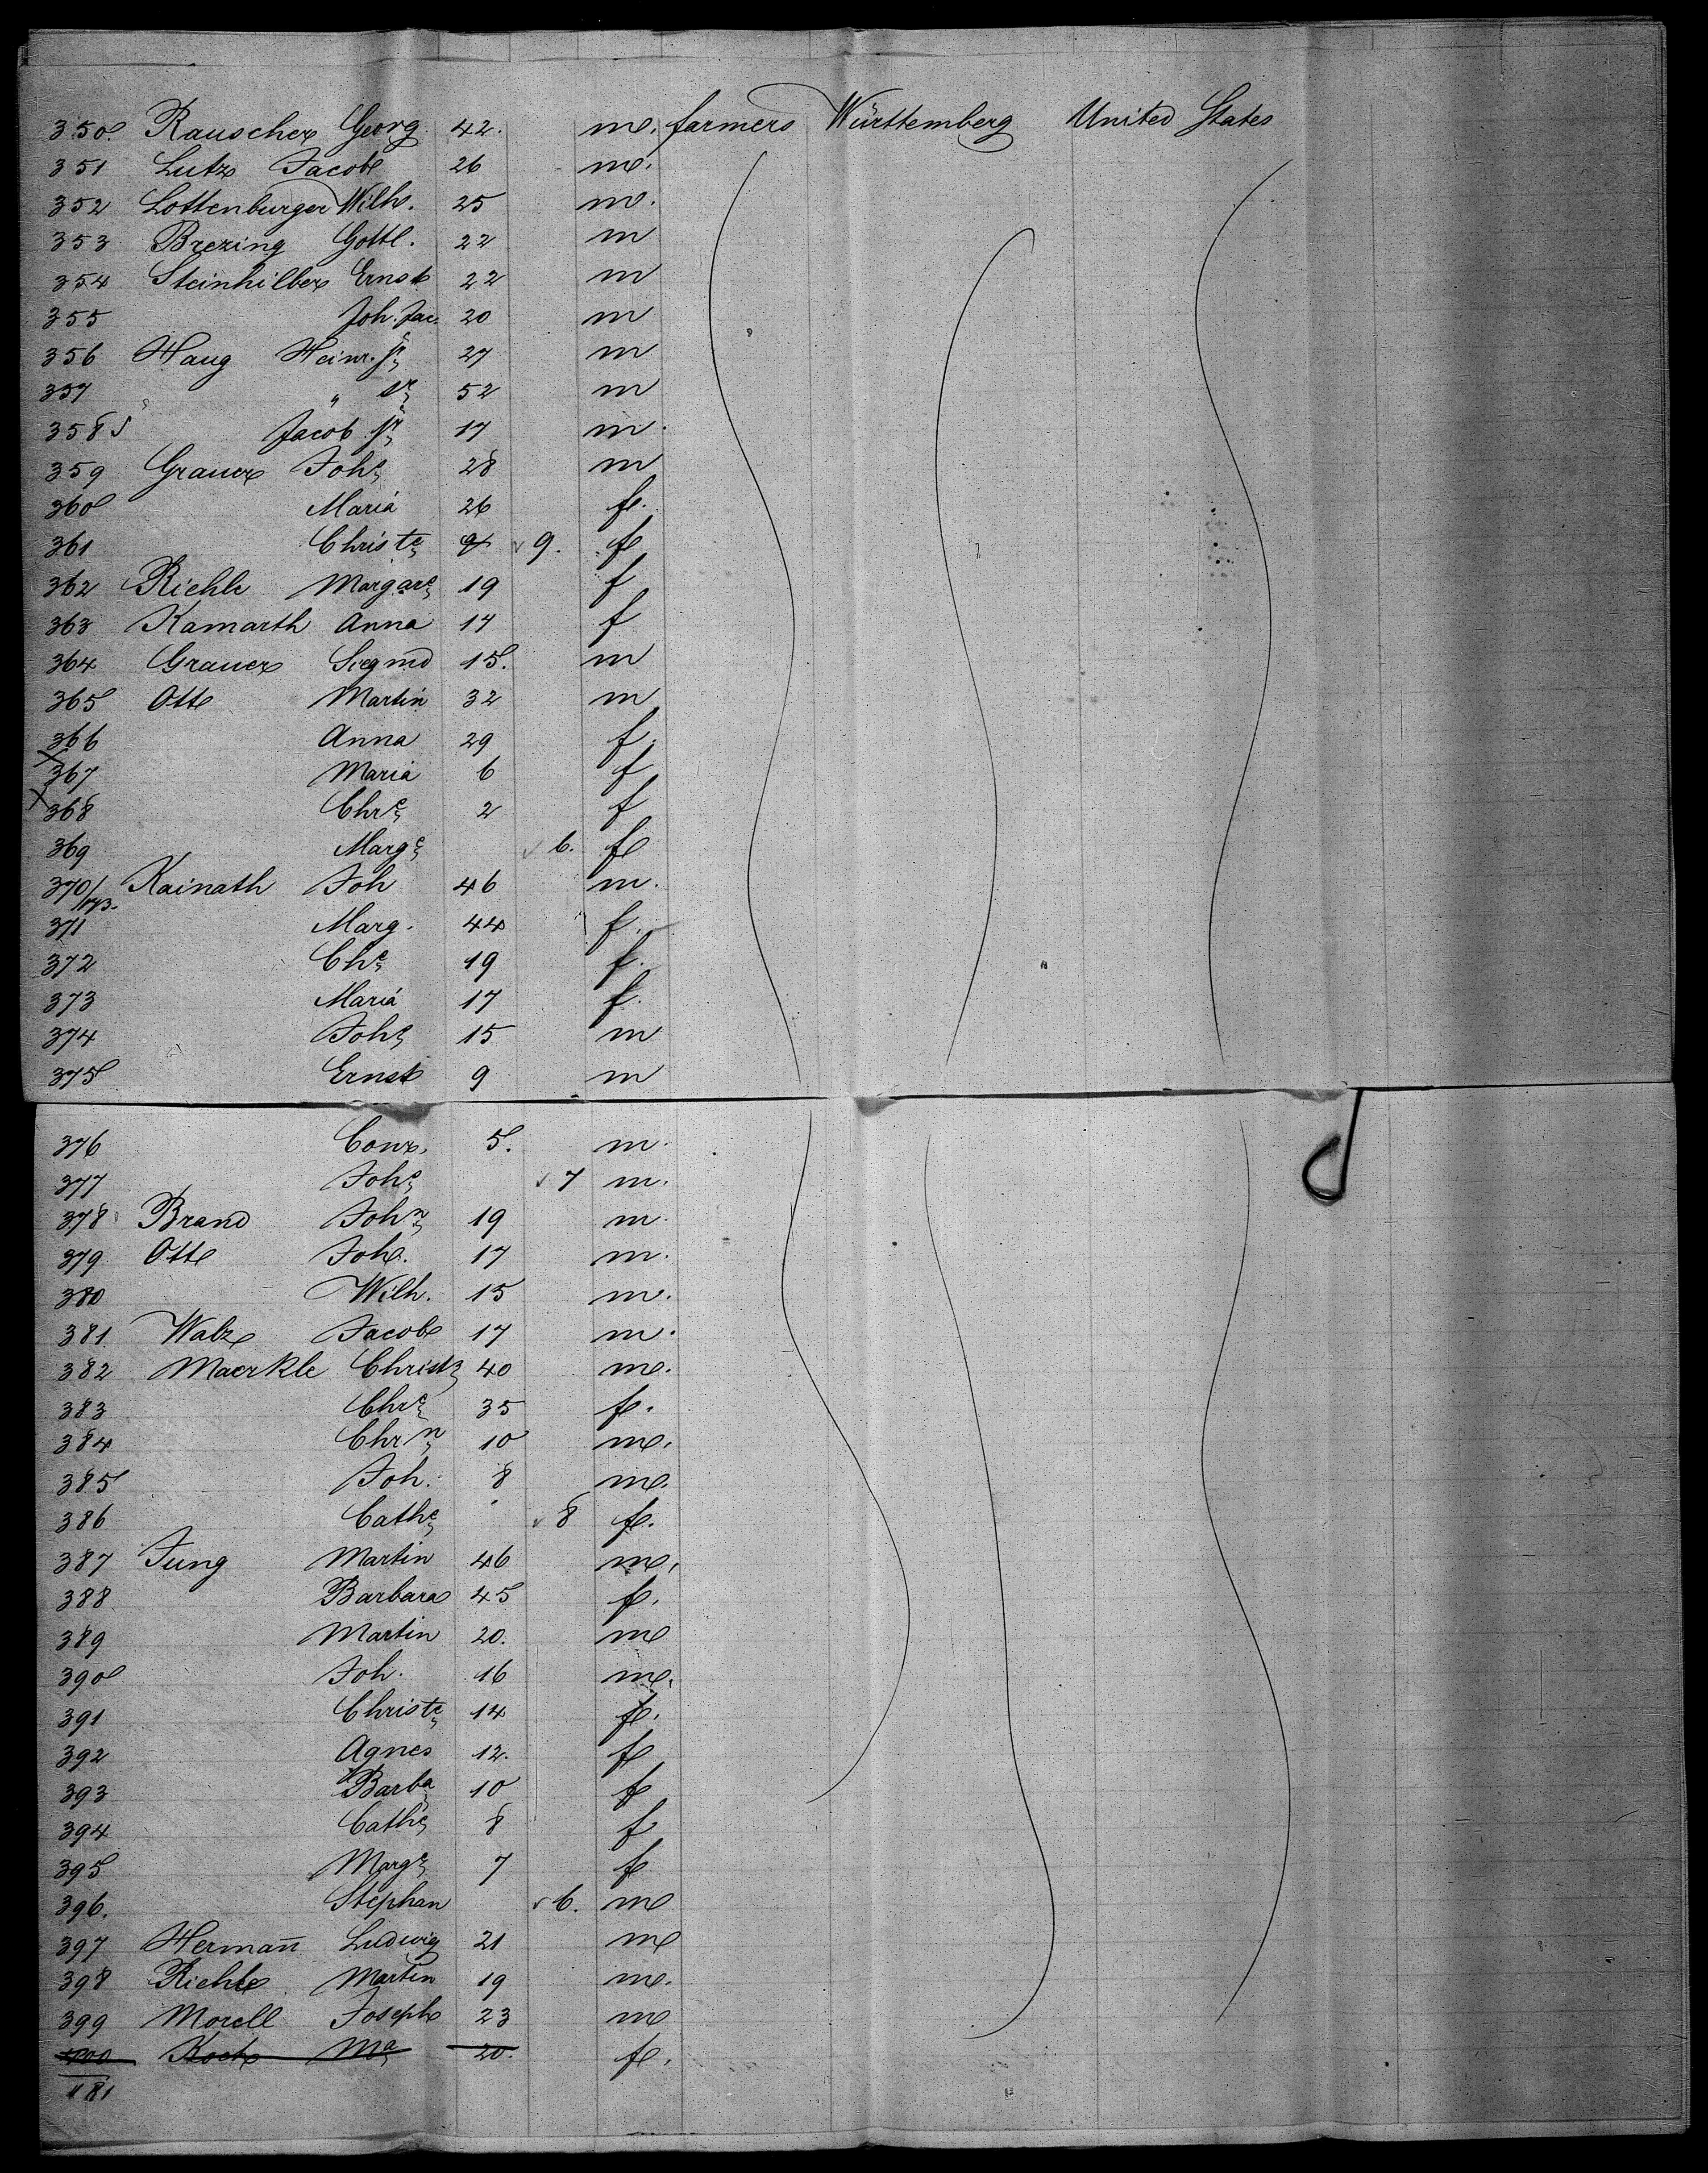 350. Rauscher Georg 42. m. farmers Württemberg United States
351 Lutz Jacob 26 m.
352 Lottenburger Wilh. 25 m.
353 Brezing Gottl. 22 m
354 Steinhilber Ernst 22 m
355 Joh. Jac. 20 m
356 Haug Heinr. jr 27 m
357 " sr 52 m
358 Jacob jr 17 m.
359 Grauer Johs 28 m
360 Maria 26 f.
361 Christe 9 9. f
362 Riehle Margare 19 f
363 Kamarth Anna 14 f
364 Grauer Siegmd 15. m
365 Ott Martin 32 m
366 Anna 29 f.
367 Maria 6 f
368 Chre 2 f
369 Marge 6. f
370/ Kainath Joh 46 m.
371 Marg. 44 f.
372 Che 19 f.
373 Maria 17 f.
374 Johs 15 m
375 Ernst 9 m
376 Conr. 5. m.
377 Johs 7 m.
378 Brand John 19 m.
379 Ott Joh. 17 m.
380 Wilh. 15 m.
381 Walz Jacob 17 m.
382 Maerkle Christ 40 m.
383 Chre 35 f.
384 Chrn 10 m.
385 Joh. 8 m.
386 Cathe 8 f.
387 Jung Martin 46 m.
388 Barbara 45 f.
389 Martin 20. m
390 Joh. 16 m.
391 Christe 14 f.
392 Agnes 12. f
393 Barba 10 f
394 Cathe 8 f
395 Marge 7 f
396. Stephan 6. m
397 Hermañ Ludwig 21 m
398 Riehle Martin 19 m.
399 Morell Joseph 23 m
400 Koch Ma 20. f.
181